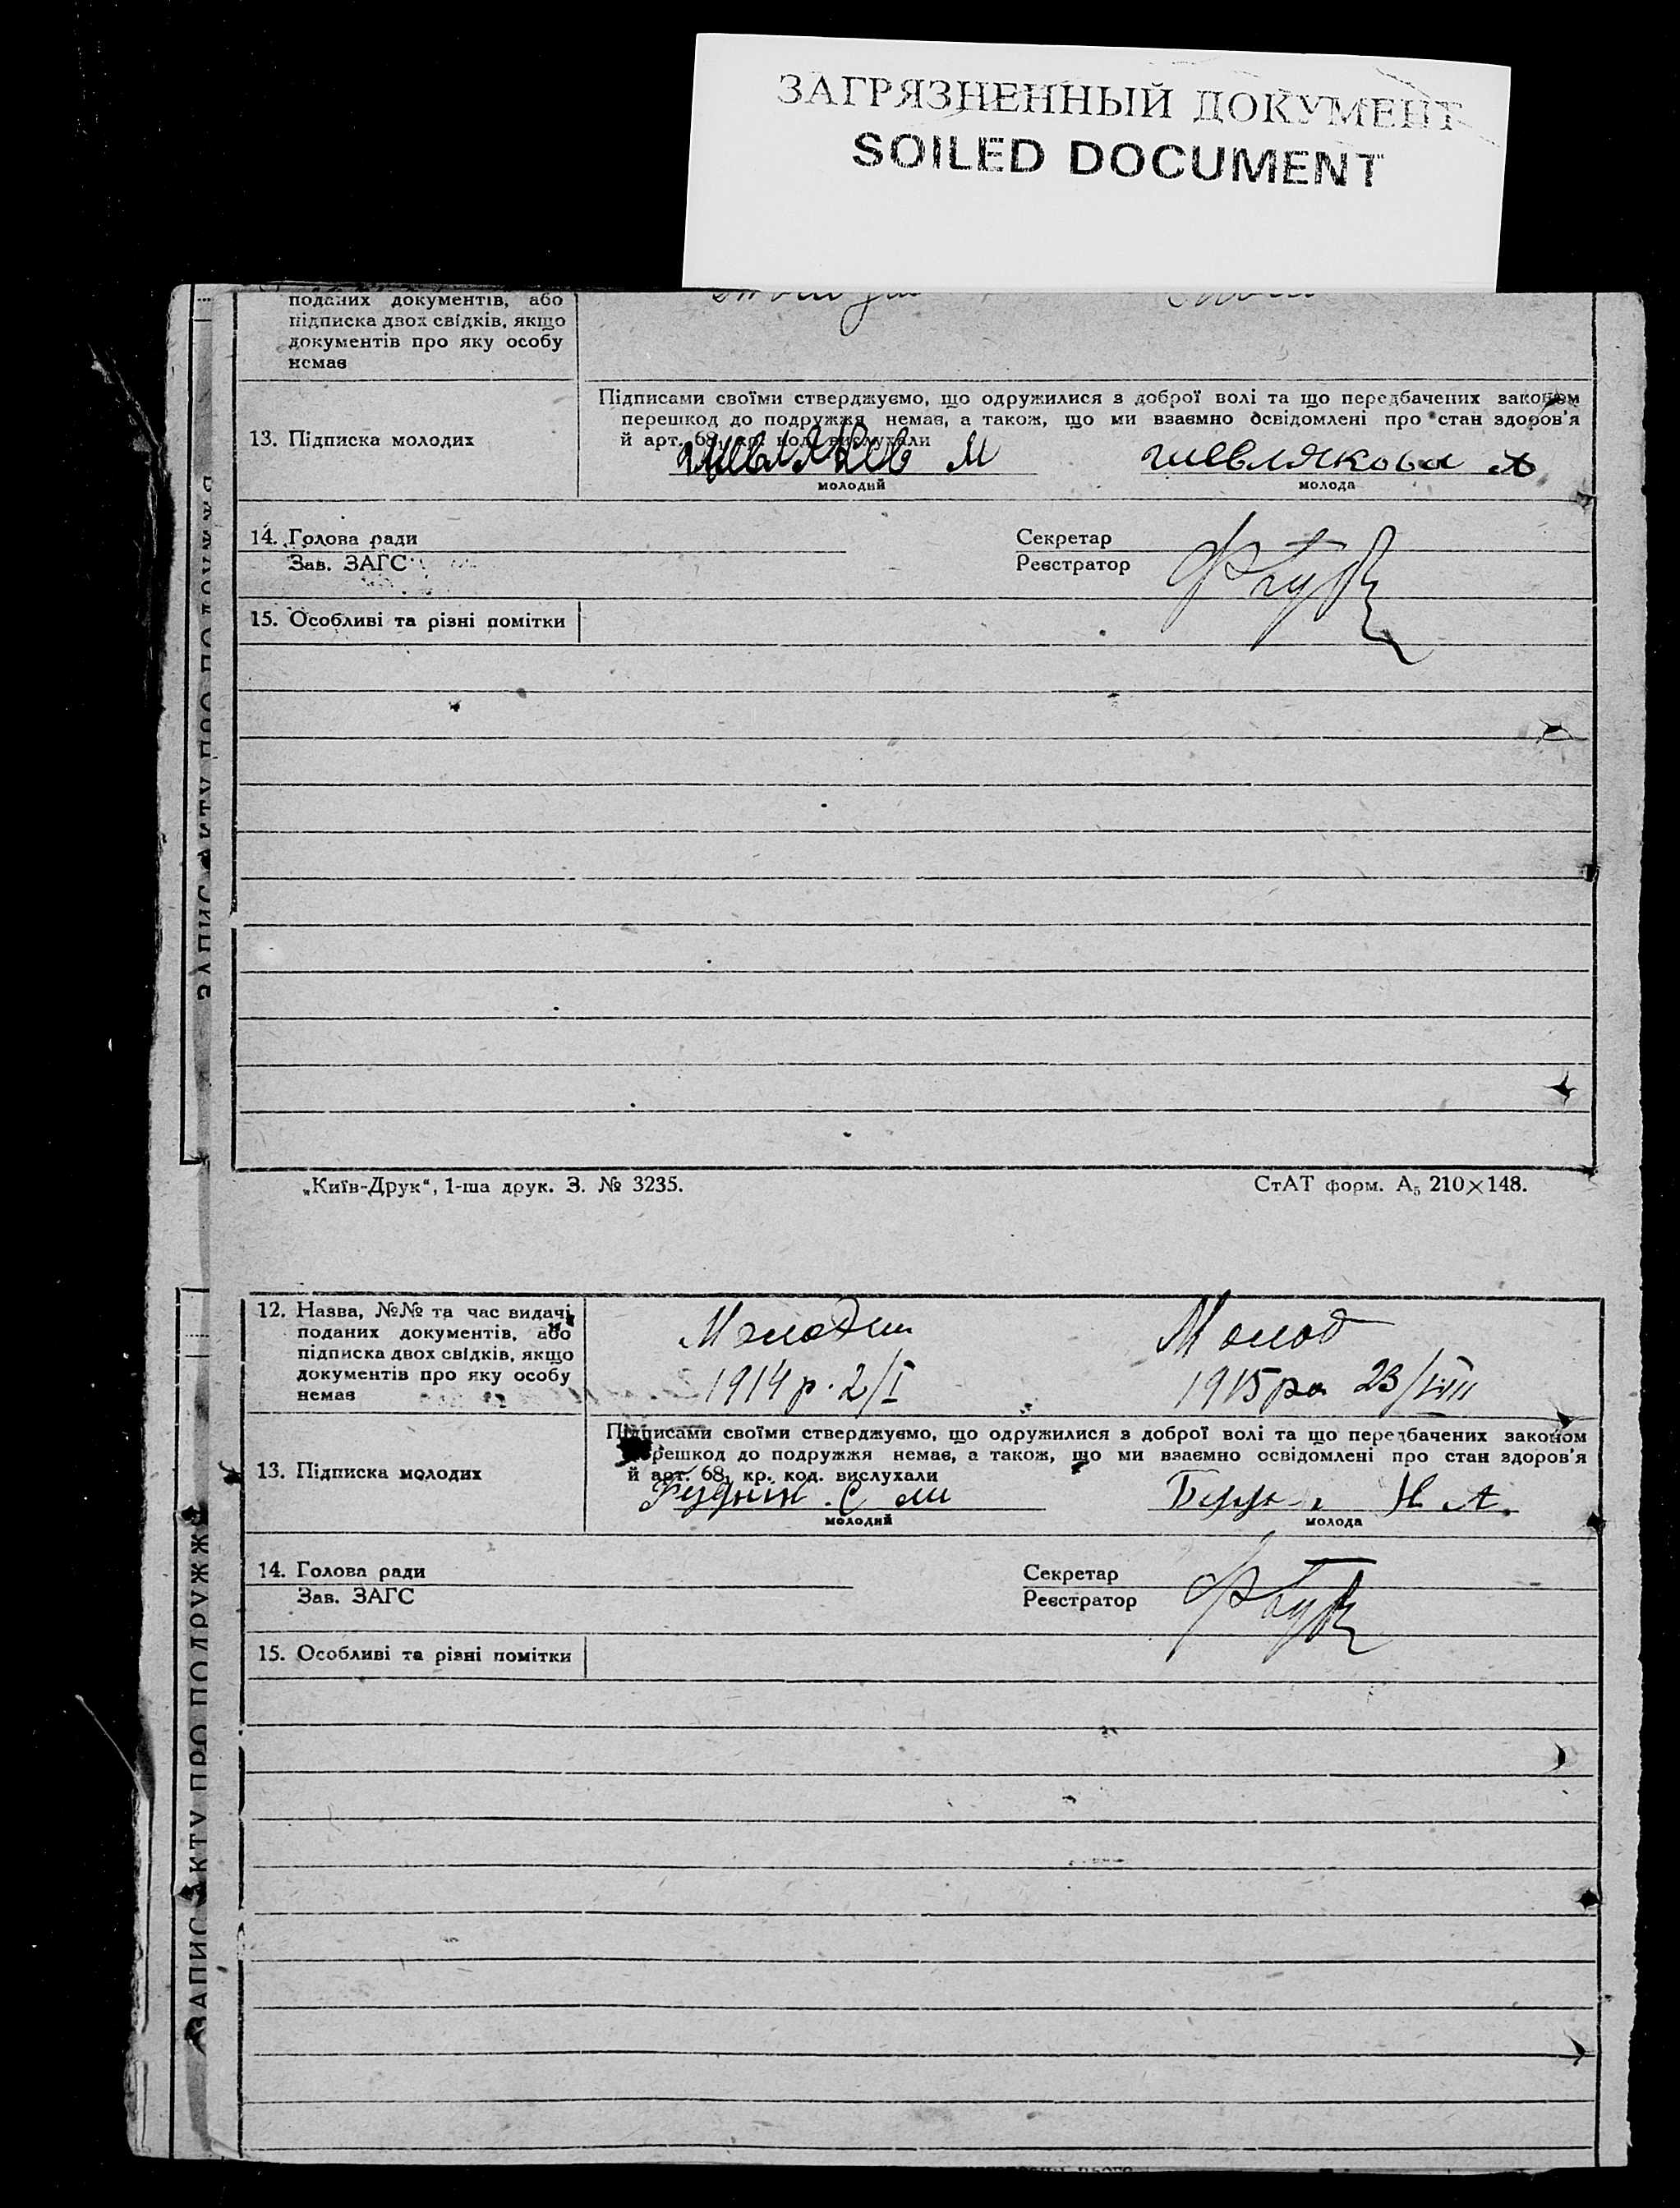 ЗАГРЯЗНЕННЫЙ ДОКУМЕНТ
SOILED DOCUMENT
поданих документів, або
підписка двох свідків, якщо
документів про яку особу
немає
13. Підписка молодих
Підписами своїми стверджуємо, що одружилися з доброї волі та що передбачених законом
перешкод до подружжя немає, а також, що ми взаємно освідомлені про стан здоров'я
й арт. 68, кр. код. вислухали
Шевляков М
Шевлякова
молодий
молода
14. Голова ради
Зав. ЗАГС
Секретар
Реєстратор
15. Особливі та різні помітки
ЗАПИС АКТУ ПРО ПОДРУЖЖЯ
„Київ-Друк“, 1-ша друк. З. № 3235.
СтАТ форм. А₅ 210×148.
12. Назва, №№ та час видачі
поданих документів, або
підписка двох свідків, якщо
документів про яку особу
немає
Молодий
Молод
1914 р. 2/I
1915 ро 23/VIII
13. Підписка молодих
Підписами своїми стверджуємо, що одружилися з доброї волі та що передбачених законом
перешкод до подружжя немає, а також, що ми взаємно освідомлені про стан здоров'я
й арт. 68, кр. код. вислухали
Н А.
молодий
молода
14. Голова ради
Зав. ЗАГС
Секретар
Реєстратор
15. Особливі та різні помітки
ЗАПИС АКТУ ПРО ПОДРУЖЖЯ